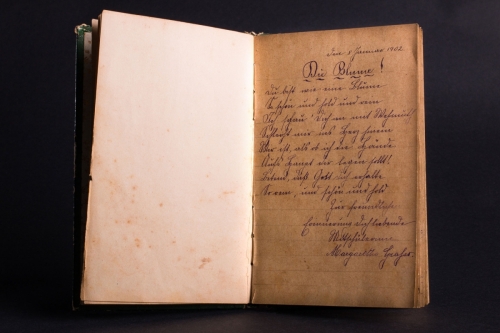 den 8 Januar 1902.
Die Blume!
Du bist wie eine Blume
So schön und hold und rein
Ich schau' dich an und Wehmut
Schleicht mir ins Herz hinein
Mir ist, als ob ich die Hände
Aufs Haupt dir legen sollt!
Betend, daß Gott dich erhalte
So rein, und schön und hold
Zur freundlich.
Erinnerung Dich liebende
Mitschülerin